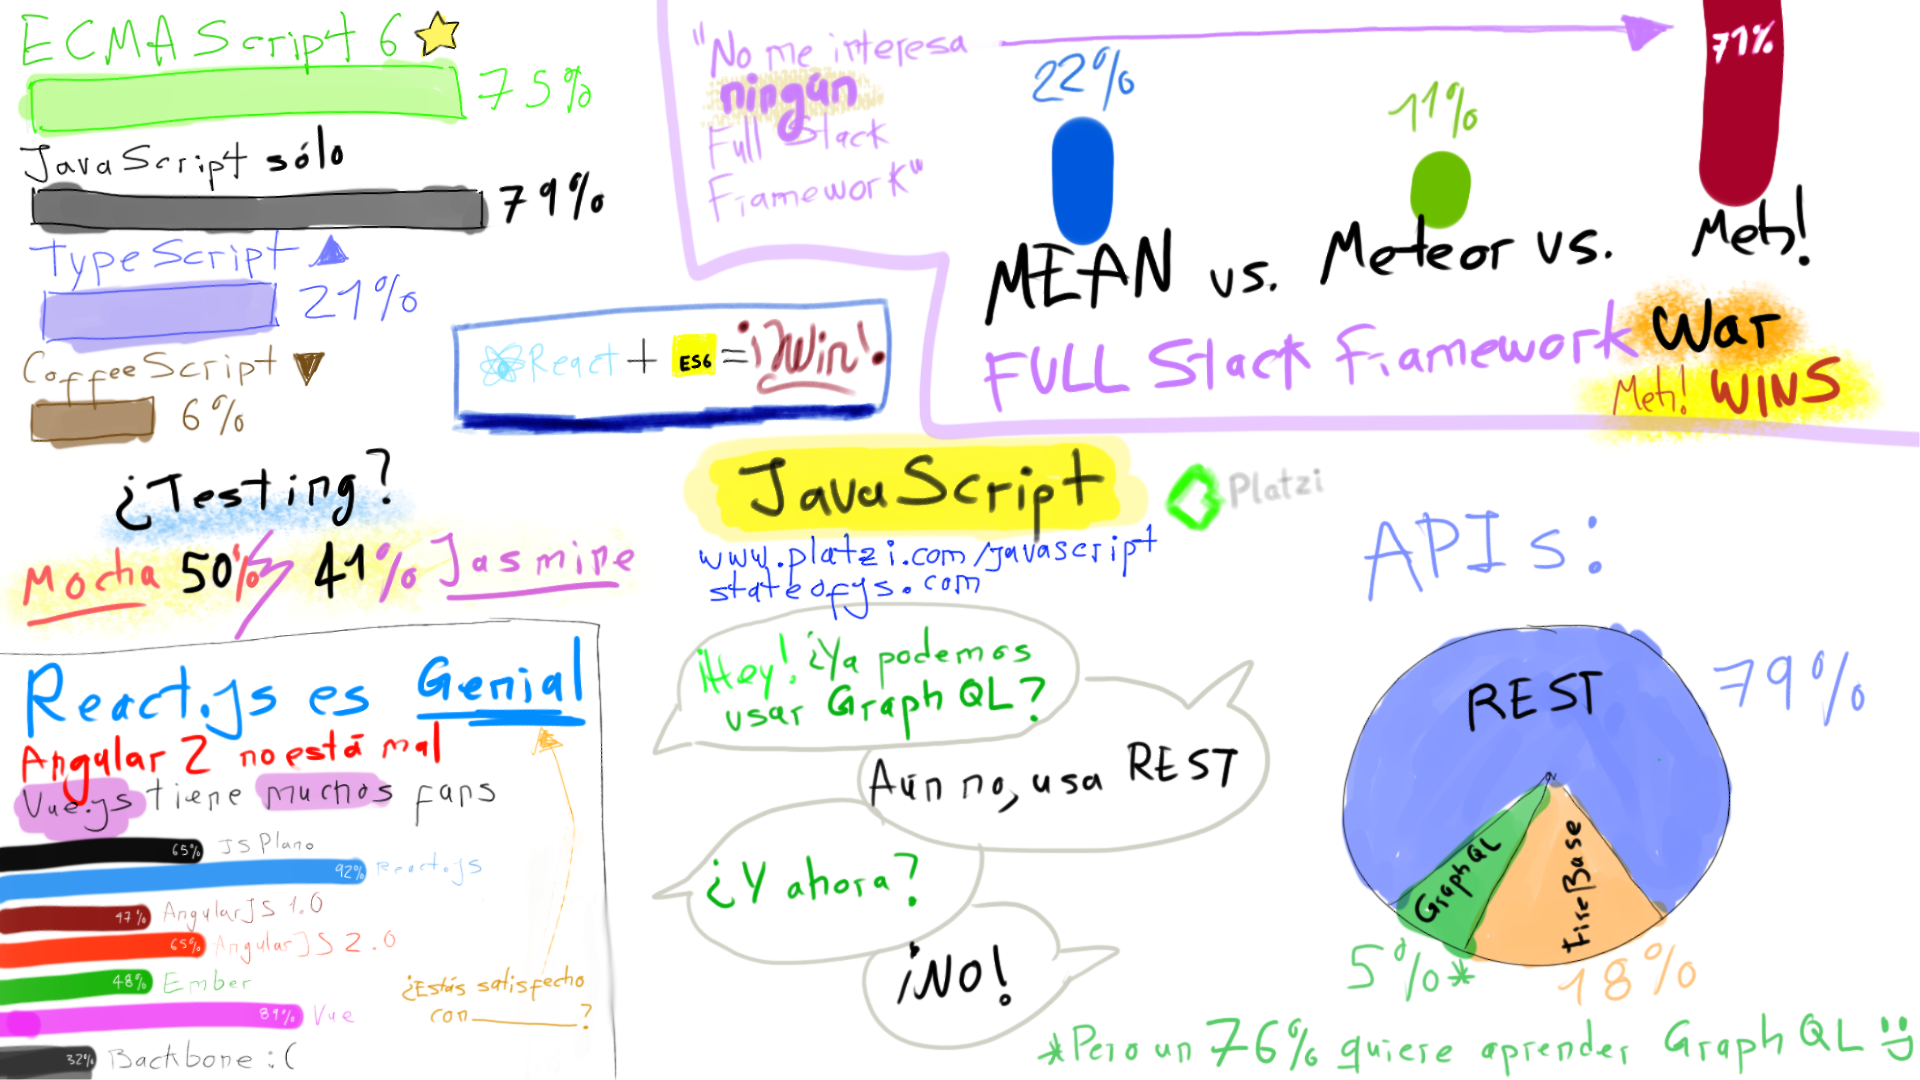 ECMAScript 6
75%
JavaScript sólo
79%
TypeScript
21%
CoffeeScript
6%
React + ES6 = ¡Win!
"No me interesa
ningún
Full Stack
Framework"
22%
11%
71%
MEAN vs. Meteor vs. Meh!
FULL Stack Framework War
Meh! WINS
¿Testing?
Mocha 50% 41% Jasmine
JavaScript
Platzi
www.platzi.com/javascript
stateofjs.com
React.js es Genial
Angular 2 no está mal
Vue.js tiene muchos fans
65% JS Plano
92% React.js
47% AngularJS 1.0
65% AngularJS 2.0
48% Ember
89% Vue
32% Backbone :(
¿Estás satisfecho
con ________?
¡Hey! ¿Ya podemos
usar GraphQL?
Aún no, usa REST
¿Y ahora?
¡No!
APIs:
REST
79%
GraphQL
5%*
FireBase
18%
*Pero un 76% quiere aprender GraphQL